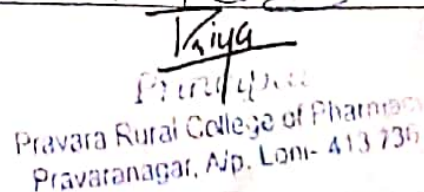 Priya
Principal
Pravara Rural College of Pharmacy
Pravaranagar, A/p. Loni- 413 736